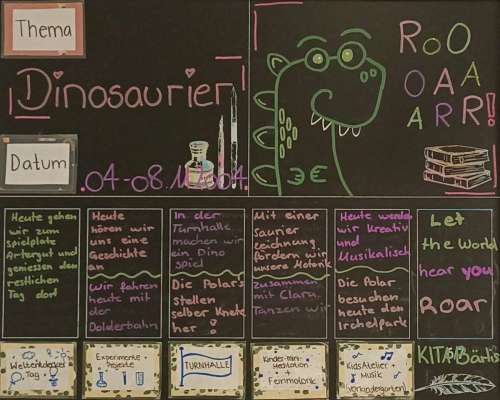 Thema
Dinosaurier
Datum
04-08.
RoO
OAA
ARR!
Heute gehen
wir zum
spielplatz
Artergut und
geniessen den
restlichen
Tag dort
Heute
hören wir
uns eine
Geschichte
an
Wir fahren
heute mit
der
Dolderbahn
In der
Turnhalle
machen wir
ein Dino
spiel
Die Polar's
stellen
selber Knete
her!
Mit einer
Saurier
zeichnung
fördern wir
unsere Motorik
zusammen
mit Clara.
Tanzen wir
Heute werden
wir Kreativ
und
Musikalisch
Die Polar
besuchen
heute den
Irchelpark
Let
the World
hear you
Roar
KITAP Bärtis
Weltentdecker
Tag
Experimente +
Projekte
TURNHALLE
Kinder-mini-
Meditation
+
Feinmotorik
Kids Atelier +
Musik
(Vorkindergarten)